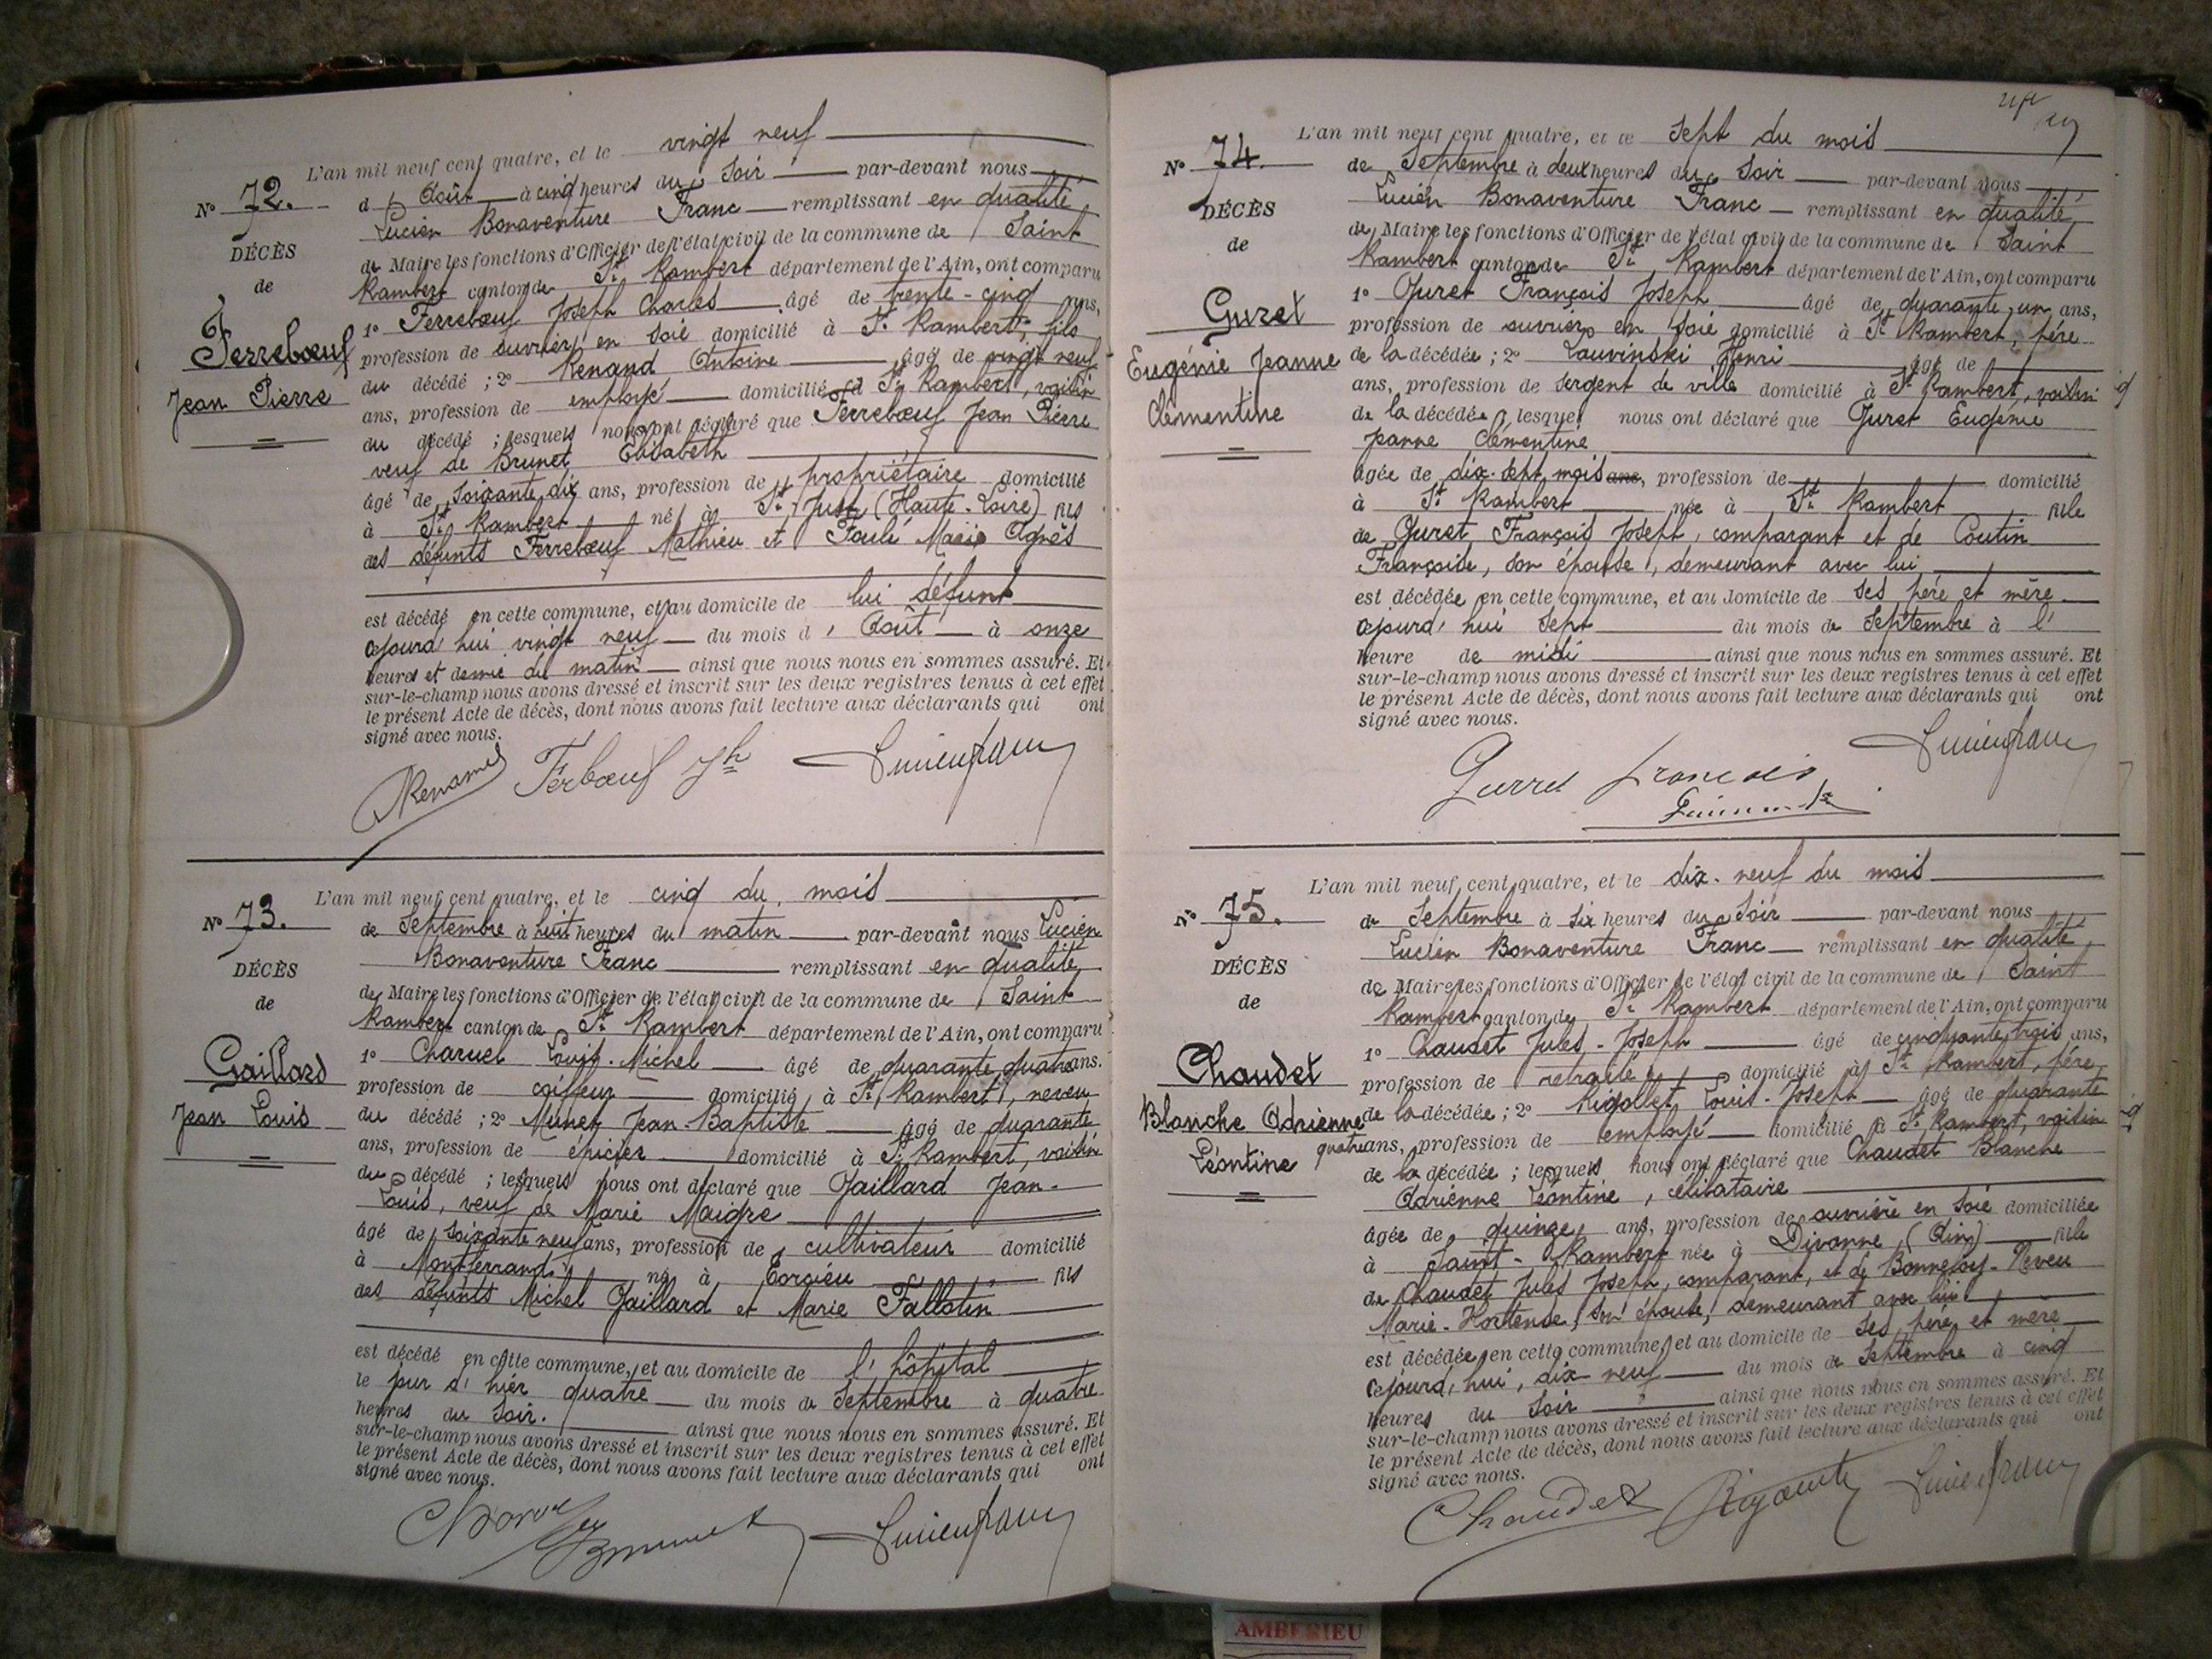 L'an mil neuf cent quatre, et le vingt neuf
No 72.
d' Août à cinq heures du Soir par-devant nous
Lucien Bonaventure Franc remplissant en qualité
DÉCÈS
de Maire les fonctions d'Officier de l'état civil de la commune de Saint
de
Rambert canton de St Rambert département de l'Ain, ont comparu
Ferrebœuf
1o Ferrebœuf Joseph Charles âgé de trente-cinq ans,
Jean Pierre
profession de ouvrier en soie domicilié à St Rambert, fils
du décédé ; 2o Renand Antoine âgé de vingt neuf
ans, profession de employé domicilié à St Rambert, voisin
du décédé ; lesquels nous ont déclaré que Ferrebœuf Jean Pierre
veuf de Brunet Elisabeth
âgé de soixante dix ans, profession de propriétaire domicilié
à St Rambert né à St Just (Haute-Loire) fils
des défunts Ferrebœuf Mathieu et Marie Agnès
est décédé en cette commune, et au domicile de lui défunt
cejourd'hui vingt neuf du mois d'Août à onze
heures et demie du matin ainsi que nous nous en sommes assuré. Et
sur-le-champ nous avons dressé et inscrit sur les deux registres tenus à cet effet
le présent Acte de décès, dont nous avons fait lecture aux déclarants qui ont
signé avec nous.
Renand Ferbœuf Jh Lucien Franc
L'an mil neuf cent quatre, et le cinq du mois
No 73.
de Septembre à huit heures du matin par-devant nous Lucien
Bonaventure Franc remplissant en qualité
DÉCÈS
de Maire les fonctions d'Officier de l'état civil de la commune de Saint
de
Rambert canton de St Rambert département de l'Ain, ont comparu
Gaillard
1o Charvet Louis-Michel âgé de quarante quatre ans.
Jean Louis
profession de coiffeur domicilié à St Rambert, neveu
du décédé ; 2o Munet Jean-Baptiste âgé de quarante
ans, profession de épicier domicilié à St Rambert, voisin
du décédé ; lesquels nous ont déclaré que Gaillard Jean-
Louis, veuf de Marie Maigre
âgé de soixante neuf ans, profession de cultivateur domicilié
à Montferrand né à Torcieu fils
des défunts Michel Gaillard et Marie Fallatin
est décédé en cette commune, et au domicile de l'hôpital
le jour d'hier quatre du mois de Septembre à quatre
heures du Soir. ainsi que nous nous en sommes assuré. Et
sur-le-champ nous avons dressé et inscrit sur les deux registres tenus à cet effet
le présent Acte de décès, dont nous avons fait lecture aux déclarants qui ont
signé avec nous.
Lucien Franc
L'an mil neuf cent quatre, et le Sept du mois
No 74.
de Septembre à deux heures du Soir par-devant nous
Lucien Bonaventure Franc remplissant en qualité
DÉCÈS
de Maire les fonctions d'Officier de l'état civil de la commune de Saint
de
Rambert canton de St Rambert département de l'Ain, ont comparu
Guret
1o Guret François Joseph âgé de quarante un ans,
Eugénie Jeanne
profession de ouvrier en soie domicilié à St Rambert, père
Clémentine
de la décédée ; 2o Louvinski Henri âgé de
ans, profession de sergent de ville domicilié à St Rambert, voisin
de la décédée lesquels nous ont déclaré que Guret Eugénie
Jeanne Clémentine
âgée de dix-sept mois ans, profession de domicilié
à St Rambert née à St Rambert fille
de Guret François Joseph, comparant et de Coutin
Françoise, son épouse, demeurant avec lui
est décédée en cette commune, et au domicile de ses père et mère
cejourd'hui Sept du mois de Septembre à l'
heure de midi ainsi que nous nous en sommes assuré. Et
sur-le-champ nous avons dressé et inscrit sur les deux registres tenus à cet effet
le présent Acte de décès, dont nous avons fait lecture aux déclarants qui ont
signé avec nous.
Lucien Franc
Gurret francois
L'an mil neuf cent quatre, et le dix-neuf du mois
No 75.
de Septembre à six heures du Soir par-devant nous
Lucien Bonaventure Franc remplissant en qualité
DÉCÈS
de Maire les fonctions d'Officier de l'état civil de la commune de Saint
de
Rambert canton de St Rambert département de l'Ain, ont comparu
Chaudet
1o Chaudet Jules-Joseph âgé de cinquante trois ans,
Blanche Adrienne
profession de retraité domicilié à St Rambert, père
Léontine
de la décédée ; 2o Rigollet Louis-Joseph âgé de quarante
quatre ans, profession de employé domicilié à St Rambert, voisin
de la décédée ; lesquels nous ont déclaré que Chaudet Blanche
Adrienne Léontine, célibataire
âgée de quinze ans, profession de ouvrière en soie domiciliée
à Saint-Rambert née à Divonne (Ain) fille
de Chaudet Jules Joseph, comparant, et de Bonnefoy-Neveu
Marie-Hortense, son épouse, demeurant avec lui
est décédée en cette commune, et au domicile de ses père et mère
cejourd'hui, dix neuf du mois de Septembre à cinq
heures du Soir ainsi que nous nous en sommes assuré. Et
sur-le-champ nous avons dressé et inscrit sur les deux registres tenus à cet effet
le présent Acte de décès, dont nous avons fait lecture aux déclarants qui ont
signé avec nous.
Chaudet Lucien Franc
AMBERIEU